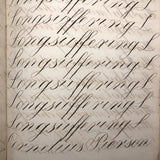 Longsuffering. L
Longsuffering. L
Longsuffering. L
Longsuffering. L
Longsuffering. L
Longsuffering. L
Pierson